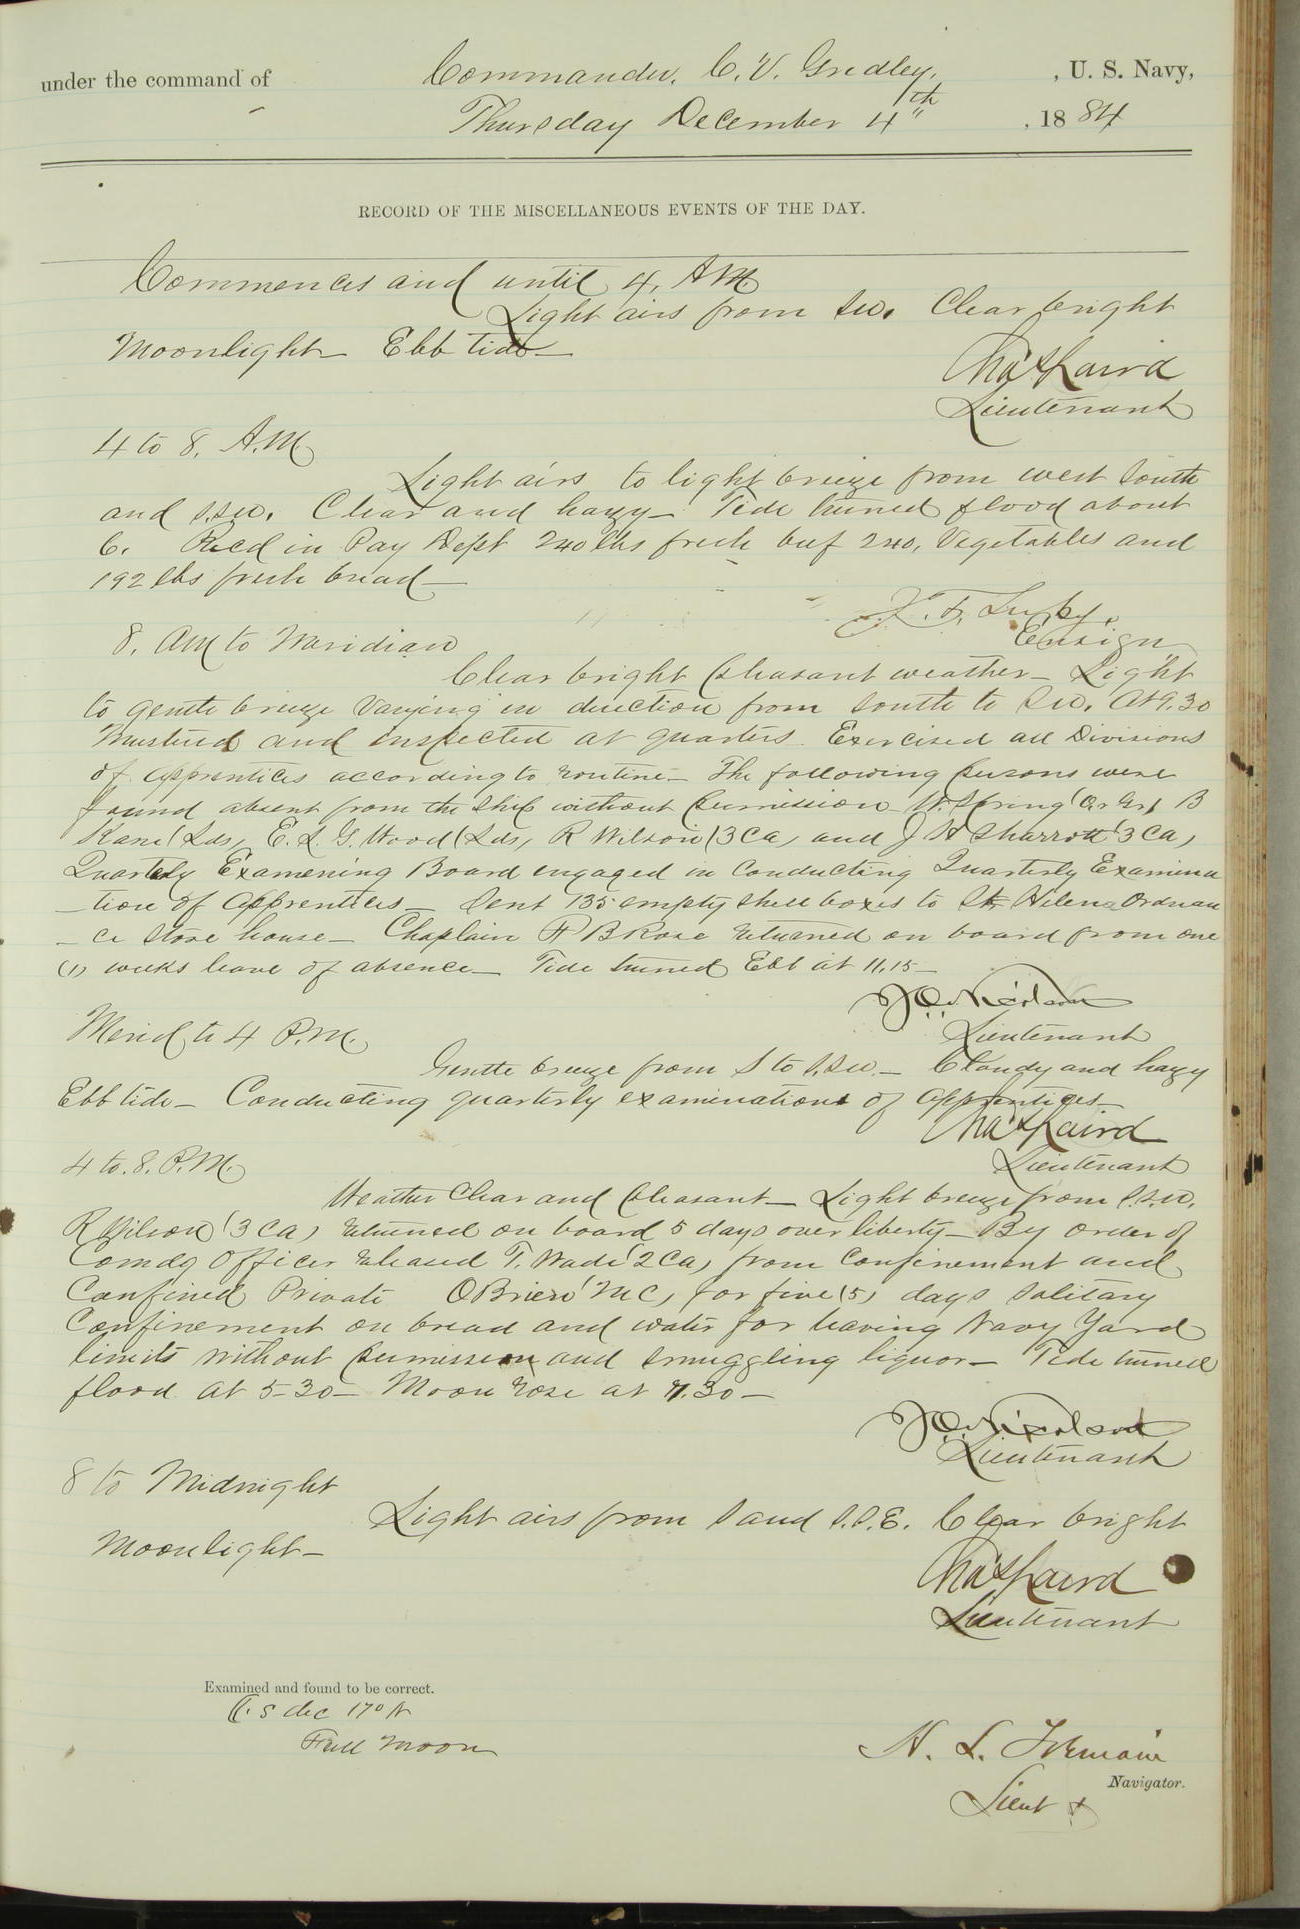 under the command of Commander. C. V. Gridley. , U. S. Navy,
Thursday December 4th , 1884
RECORD OF THE MISCELLANEOUS EVENTS OF THE DAY.
Commences and until 4, A.M.
Light airs from SW. Clear bright
Moonlight Ebb tide—
Chas Laird
Lieutenant
4 to 8. A.M.
Light airs to light breeze from west South
and S.SW. Clear and hazy— Tide turned flood about
6. Recd in Pay Dept 240 lbs fresh beef 240, Vegetables and
192 lbs fresh bread—
Ensign
8. AM to Meridian
Clear bright pleasant weather— Light
to gentle breeze varying in direction from South to SW. At 9.30
Mustered and inspected at quarters. Exercised all Divisions
of apprentices according to routine— The following persons were
found absent from the ship without permission W. Spring B
Kane (Lds, E. L. G. Wood (Lds, R Wilson (3 Ca, and J H Sharrott (3 Ca,
Quartely Examening Board engaged in conducting Quarterly Examina
-tion of apprentices— Sent 135 empty shell boxes to St Helena Ordnan
-ce Store house— Chaplain H B Rose returned on board from one
(1) weeks leave of absence— Tide turned Ebb at 11.15—
J O Nicholson
Lieutenant
Merid to 4 P.M.
Gentle breeze from S to S.SW.— Cloudy and hazy
Ebb tide— Conducting quarterly examinations of apprentices—
Chas Laird
Lieutenant
4 to. 8. P.M.
Weather Clear and pleasant— Light breeze from S.S.W.
R Wilson (3 Ca) returned on board 5 days over liberty— By order of
Comdg Officer released T. Wade (2 Ca, from confinement and
Confined Private OBrien (M C, for five (5) days solitary
Confinement on bread and water for leaving Navy Yard
limits without permission and smuggling liquor— Tide turned
flood at 5-30— Moon rose at 7.30—
J O Nicholson
Lieutenant
8 to Midnight
Light airs from S and S.S.E. Clear bright
Moonlight—
Chas Laird
Lieutenant
Examined and found to be correct.
dec 17° N
Full moon
H. L. Tremain
Navigator.
Lieut